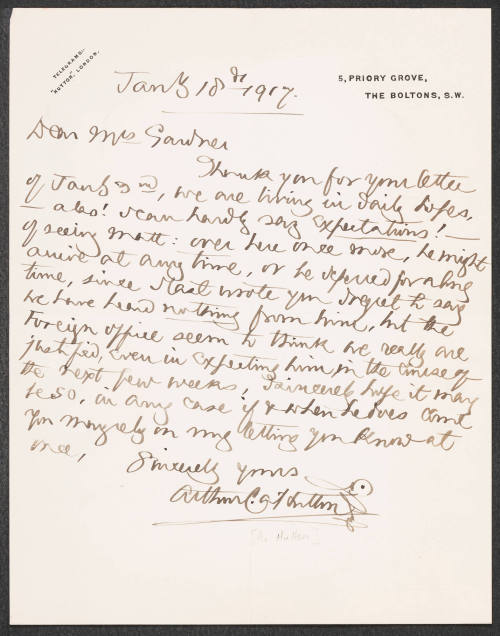 TELEGRAMS:-
"HUTTON", LONDON.
5, PRIORY GROVE,
THE BOLTONS, S.W.
Jany 18th 1917.
Dear Mrs Gardner
Thank you for your letter
of Jany 3rd, we are living in daily hopes,
- alas! I can hardly say Expectations! -
of seeing Matt: over here once more, he might
arrive at any time, or be deferred for a long
time, since I last wrote you I regret to say
we have heard nothing from him, but the
Foreign Office seem to think we really are
justified, even in Expecting him, in the course of
the next few weeks, I sincerely hope it may
be so, in any case if & when he does come
you may rely on my letting you know at
once,
Sincerely yours
Arthur C. Hutton
[A. Hutton]